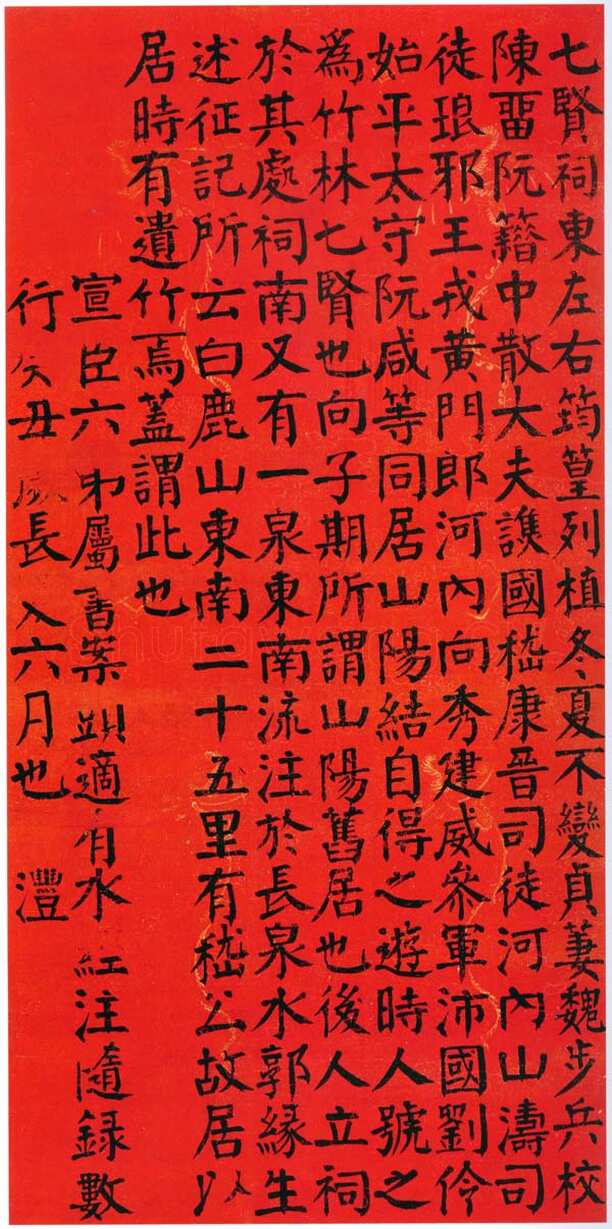 七賢祠東左右筠篁列植冬夏不變貞萋魏步兵校
陳畱阮籍中散大夫譙國嵇康晉司徒河內山濤司
徒琅邪王戎黃門郎河內向秀建威參軍沛國劉伶
始平太守阮咸等同居山陽結自得之遊時人號之
為竹林七賢也向子期所謂山陽舊居也後人立祠
於其處祠南又有一泉東南流注於長泉水郭緣生
述征記所云白鹿山東南二十五里有嵇公故居以
居時有遺竹焉蓋謂此也
宣臣六弟屬書案頭適有水經注隨錄數
行癸丑歲長入六月也 灃